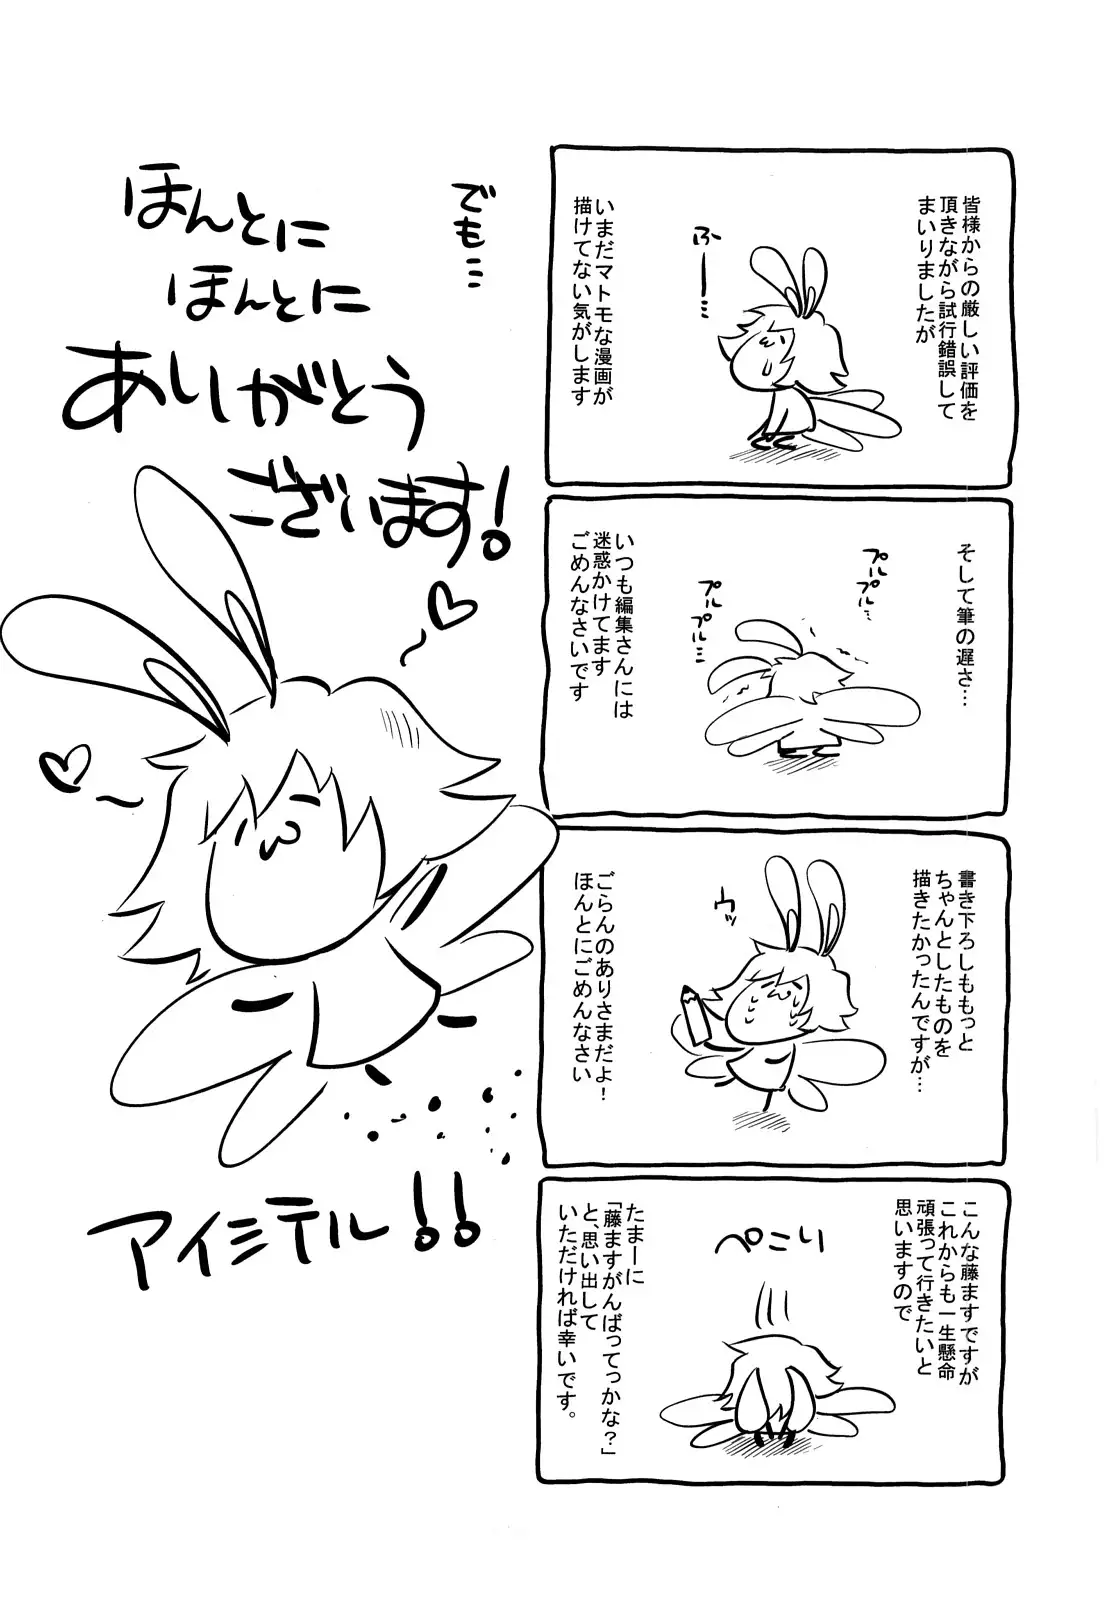 皆様からの厳しい評価を
頂きながら試行錯誤して
まいりましたが
ふー…
いまだマトモな漫画が
描けてない気がします
そして筆の遅さ…
プルプル…
プルプル…
いつも編集さんには
迷惑かけてます
ごめんなさいです
書き下ろしももっと
ちゃんとしたものを
描きたかったんですが…
ウッ
ごらんのありさまだよ！
ほんとにごめんなさい
こんな藤ますですが
これからも一生懸命
頑張って行きたいと
思いますので
ぺこり
たまーに
「藤ますがんばってっかな？」
と、思い出して
いただければ幸いです。
でも…
ほんとに
ほんとに
ありがとう
ございます！
アイミテル！！